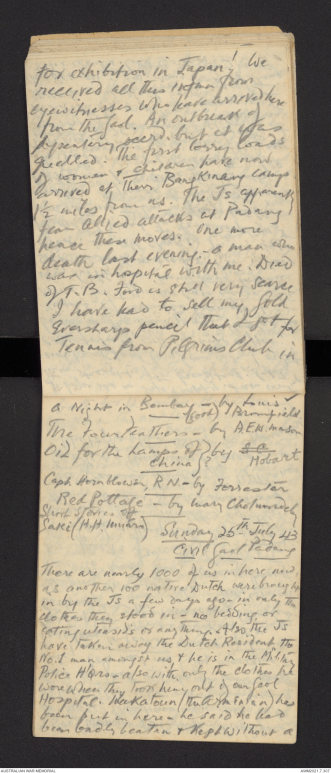 for exhibition in Japan! We
received all this inform from
eyewitnesses who have arrived here
from the gaol. An outbreak of
dysentery occrd. but it was
quelled. The first lorry loads
of women & children have now
arrived at their Bangkinang camp
1½ miles from us. The Js apparently
fear Allied attacks at Padang
hence these moves. One more
death last evening - a man who
was in hospital with me. Died
of T.B. Food is still very scarce
I have had to sell my gold
Eversharp pencil that I got for
Tennis from Pilgrims Club in
a Night in Bombay - by Louis
(good) Bromfield
The Four Feathers - by A E W Mason
Oil for the Lamps of by
China Hobart
Capt. Hornblower, R.N - by Forrester
Red Pottage - by Mary Cholmondely
Short Stories of
Saki (H.H. Munro)
Sunday 25th July 43
Civil Gaol Padang
There are nearly 1000 of us in here now
as another 100 native Dutch were brought
in by the Js a few days ago in only the
clothes they stood in - no bedding or
eating utensils or anything. Also the Js
have taken away the Dutch Resident the
No. 1 man amongst us & he is in the Military
Police HQrs also with only the clothes he
wore when they took him out of our gaol
Hospital. has
been put in here & he said he had
been badly beaten & kept without a
AUSTRALIAN WAR MEMORIAL